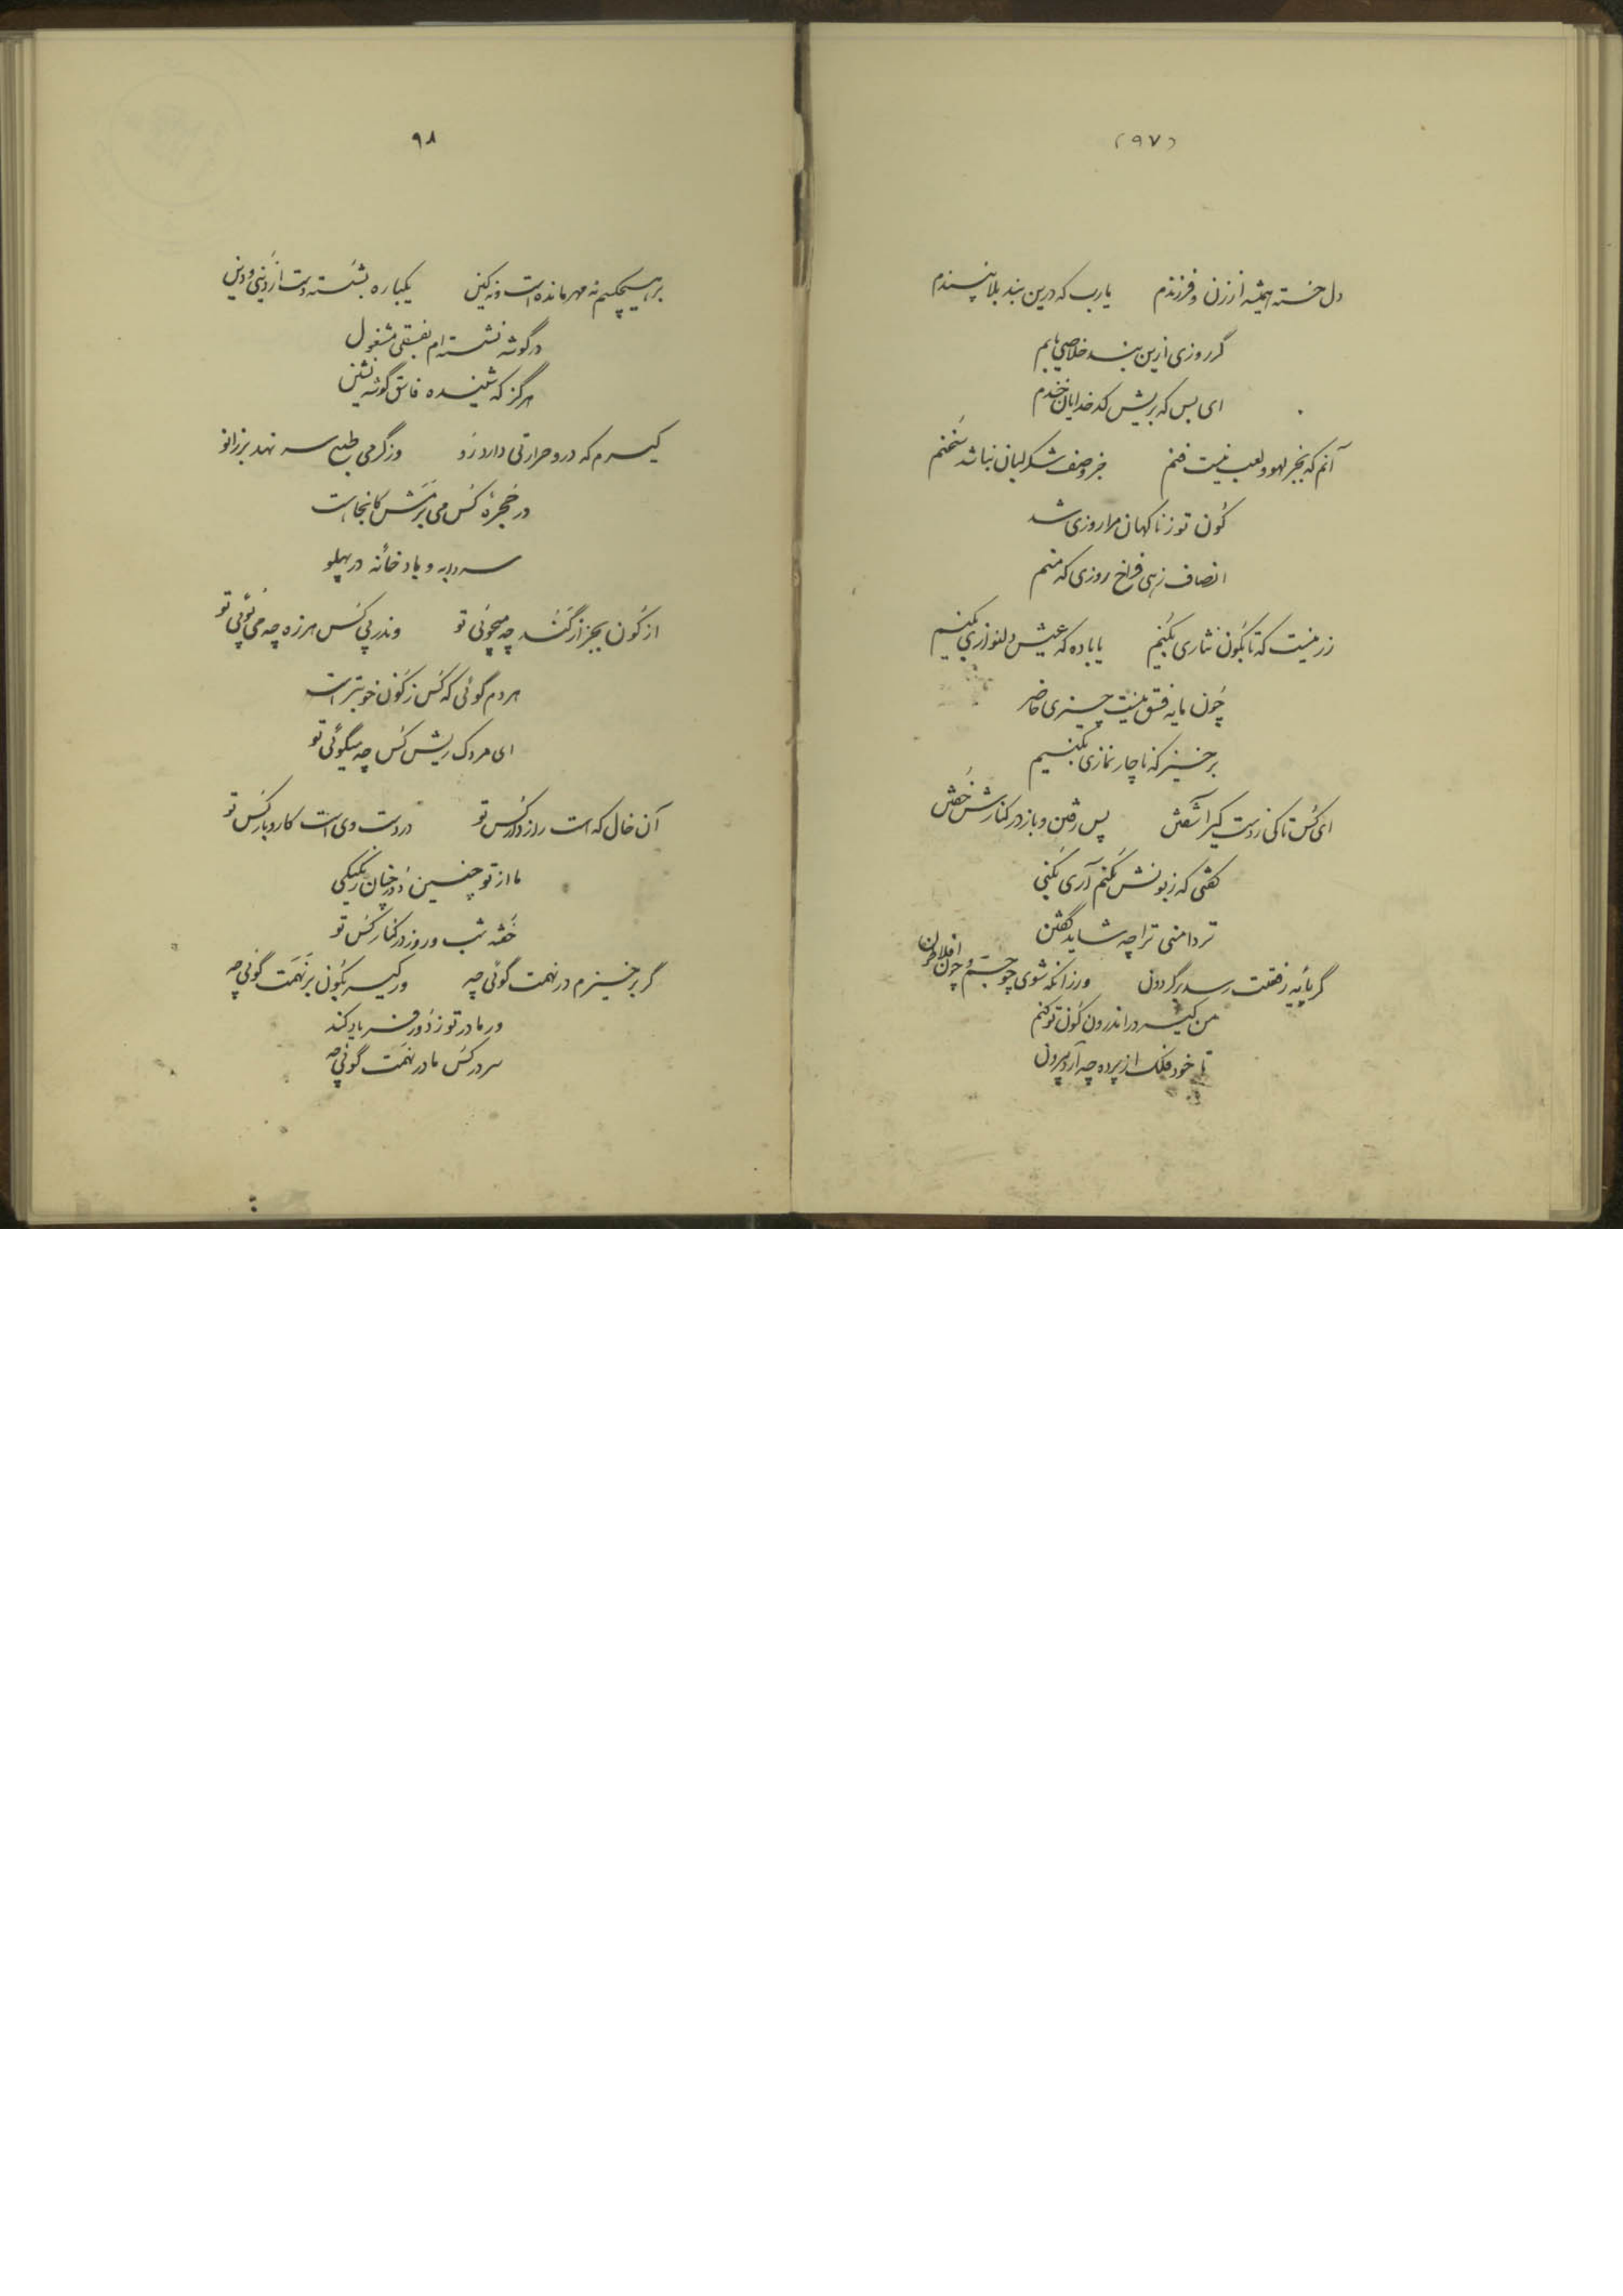 (۹۷)
دل خسته همیشه از زن و فرزندم یارب که درین بند بلا نپسندم
گر روزی ازین بند خلاصی یابم
ای بس که بریش کدخدایان خندم
آنم که بجز لهو و لعب نیست فنم جز وصف شکر لبان نباشد سخنم
کون تو ز ناگهان مرا روزی شد
انصاف زهی فراخ روزی که منم
زر نیست که تا بکون نثاری بکنیم یا باده که عیش دلنوازی بکنیم
چون مایه فسق نیست چیزی حاضر
برخیز که ناچار نمازی بکنیم
ای کس تا کی ز دست کیر آشفتن پس رفتن و باز در کنارش خفتن
گفتی که زبونش نکنم آری نکنی
تردامنی ترا چه شاید گفتن
گر پایه رفعتت رسد بر گردون ورزانکه شوی چو جم و چون افلاطون
من کیر در اندرون کون تو کنم
تا خود فلک از پرده چه آرد بیرون
۹۸
بر هیچکسم نه مهر مانده است و نه کین یکباره بشسته دست از دنیی و دین
در گوشه نشسته‌ام بفسقی مشغول
هرگز که شنیده فاسق گوشه نشین
کیرم که درو حرارتی دارد زو وز گرمی طبع سر نهد بر زانو
در حجره کس می برمش کانجاست
سردابه و بادخانه در پهلو
از کون بجز از گند چه میجوئی تو وندر پی کس هرزه چه می پوئی تو
هر دم گوئی که کس ز کون خوبتر است
ای مردک ریش کس چه میگوئی تو
آن خال که است رازدار کس تو در دست وی است کاروبار کس تو
ما از تو چنین دور چنان زنگیکی
خفته شب و روز در کنار کس تو
گر برخیزم در نهمت گوئی چه ور کیر بکون بر نهمت گوئی چه
ور مادر تو ز دور فریاد کند
سر در کس مادر نهمت گوئی چه